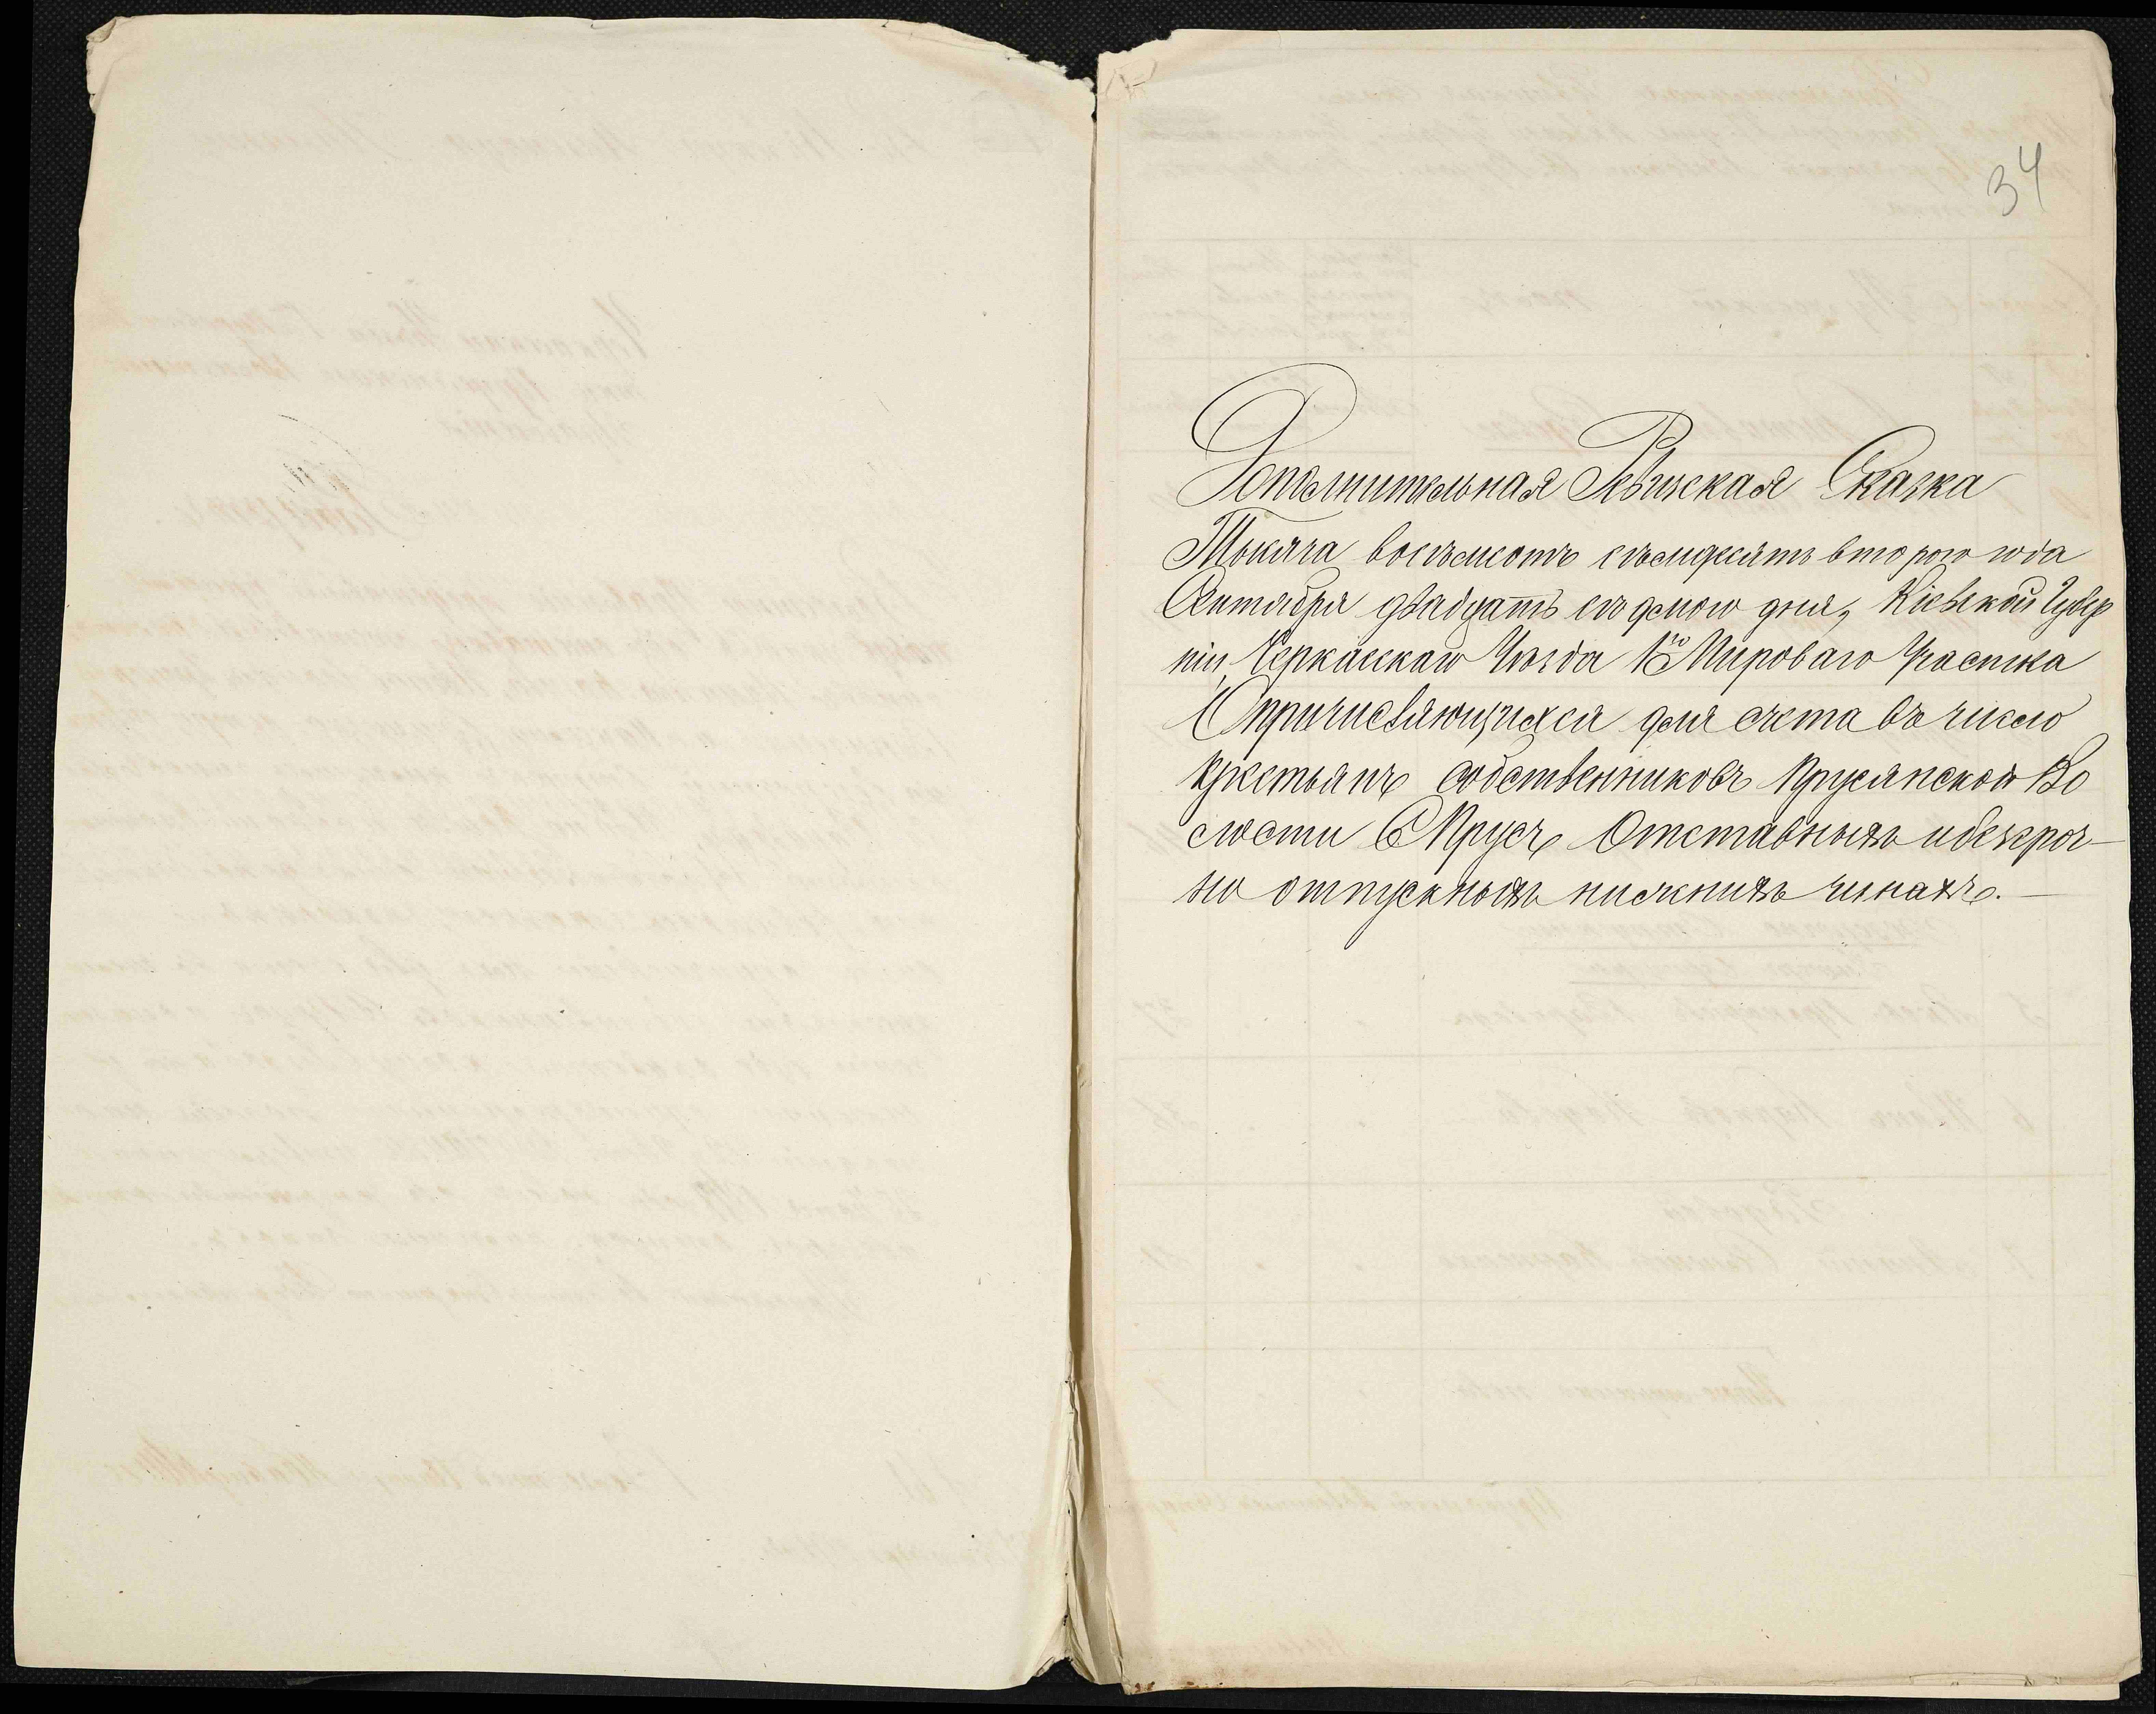 34
Дополнительная Ревизская Сказка
Тысяча восемьсотъ семьдесятъ второго года
Октября двадцатъ седмого дня, Кіевской Губер
ніи, Черкасскаго Уѣзда 1го Мироваго Участка
О причисляющихся для счета въ число
крестьянъ собственниковъ Прусянской Во
лости С Прусъ Отставныхъ и безсроч-
но отпускныхъ нижнихъ чинахъ.—